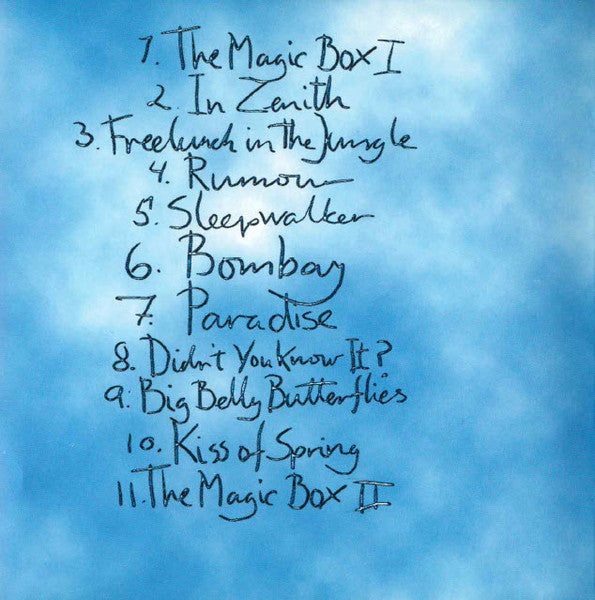 1. The Magic Box I
2. In Zenith
3. Freelunch in The Jungle
4. Rumour
5. Sleepwalker
6. Bombay
7. Paradise
8. Didn't You Know It?
9. Big Belly Butterflies
10. Kiss of Spring
11. The Magic Box II